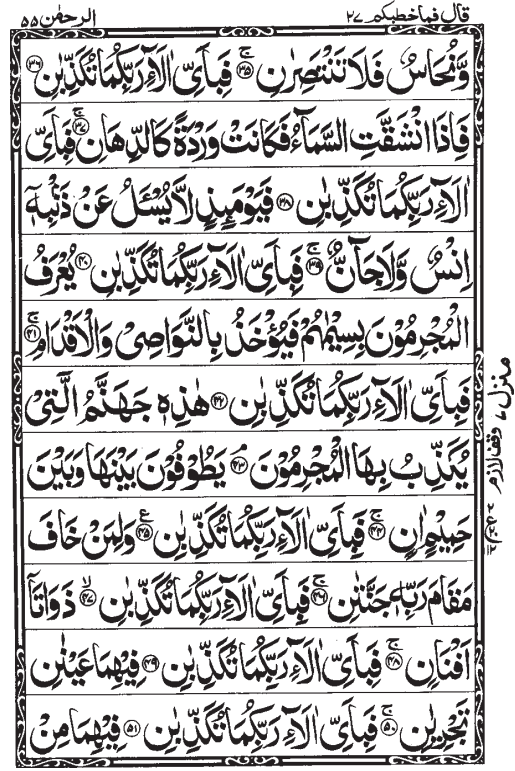 قال فما خطبكم ٢٧ الرحمٰن ٥٥
وَّنُحَاسٌ فَلَا تَنْتَصِرٰنِ ۚ‏﴿۳۵﴾ فَبِاَىِّ اٰلَآءِ رَبِّكُمَا تُكَذِّبٰنِ ﴿۳۶﴾
فَاِذَا انْشَقَّتِ السَّمَآءُ فَكَانَتْ وَرْدَةً كَالدِّهَانِ ۚ﴿۳۷﴾ فَبِاَىِّ
اٰلَآءِ رَبِّكُمَا تُكَذِّبٰنِ ﴿۳۸﴾ فَيَوْمَئِذٍ لَّا يُسْـَٔلُ عَنْ ذَنْۢبِهٖۤ
اِنْسٌ وَّلَا جَآنٌّ ۚ﴿۳۹﴾ فَبِاَىِّ اٰلَآءِ رَبِّكُمَا تُكَذِّبٰنِ ﴿۴۰﴾ يُعْرَفُ
الْمُجْرِمُوْنَ بِسِيْمٰهُمْ فَيُؤْخَذُ بِالنَّوَاصِىْ وَالْاَقْدَامِ ۚ﴿۴۱﴾
فَبِاَىِّ اٰلَآءِ رَبِّكُمَا تُكَذِّبٰنِ ﴿۴۲﴾ هٰذِهٖ جَهَنَّمُ الَّتِىْ
يُكَذِّبُ بِهَا الْمُجْرِمُوْنَ ۘ﴿۴۳﴾ يَطُوْفُوْنَ بَيْنَهَا وَبَيْنَ
حَمِيْمٍ اٰنٍ ۚ﴿۴۴﴾ فَبِاَىِّ اٰلَآءِ رَبِّكُمَا تُكَذِّبٰنِ ﴿۴۵﴾ ع وَلِمَنْ خَافَ
مَقَامَ رَبِّهٖ جَنَّتٰنِ ۚ﴿۴۶﴾ فَبِاَىِّ اٰلَآءِ رَبِّكُمَا تُكَذِّبٰنِ ۙ﴿۴۷﴾ ذَوَاتَاۤ
اَفْنَانٍ ۚ﴿۴۸﴾ فَبِاَىِّ اٰلَآءِ رَبِّكُمَا تُكَذِّبٰنِ ﴿۴۹﴾ فِيْهِمَا عَيْنٰنِ
تَجْرِيٰنِ ۚ﴿۵۰﴾ فَبِاَىِّ اٰلَآءِ رَبِّكُمَا تُكَذِّبٰنِ ﴿۵۱﴾ فِيْهِمَا مِنْ
منزل ٧
وقف لازم